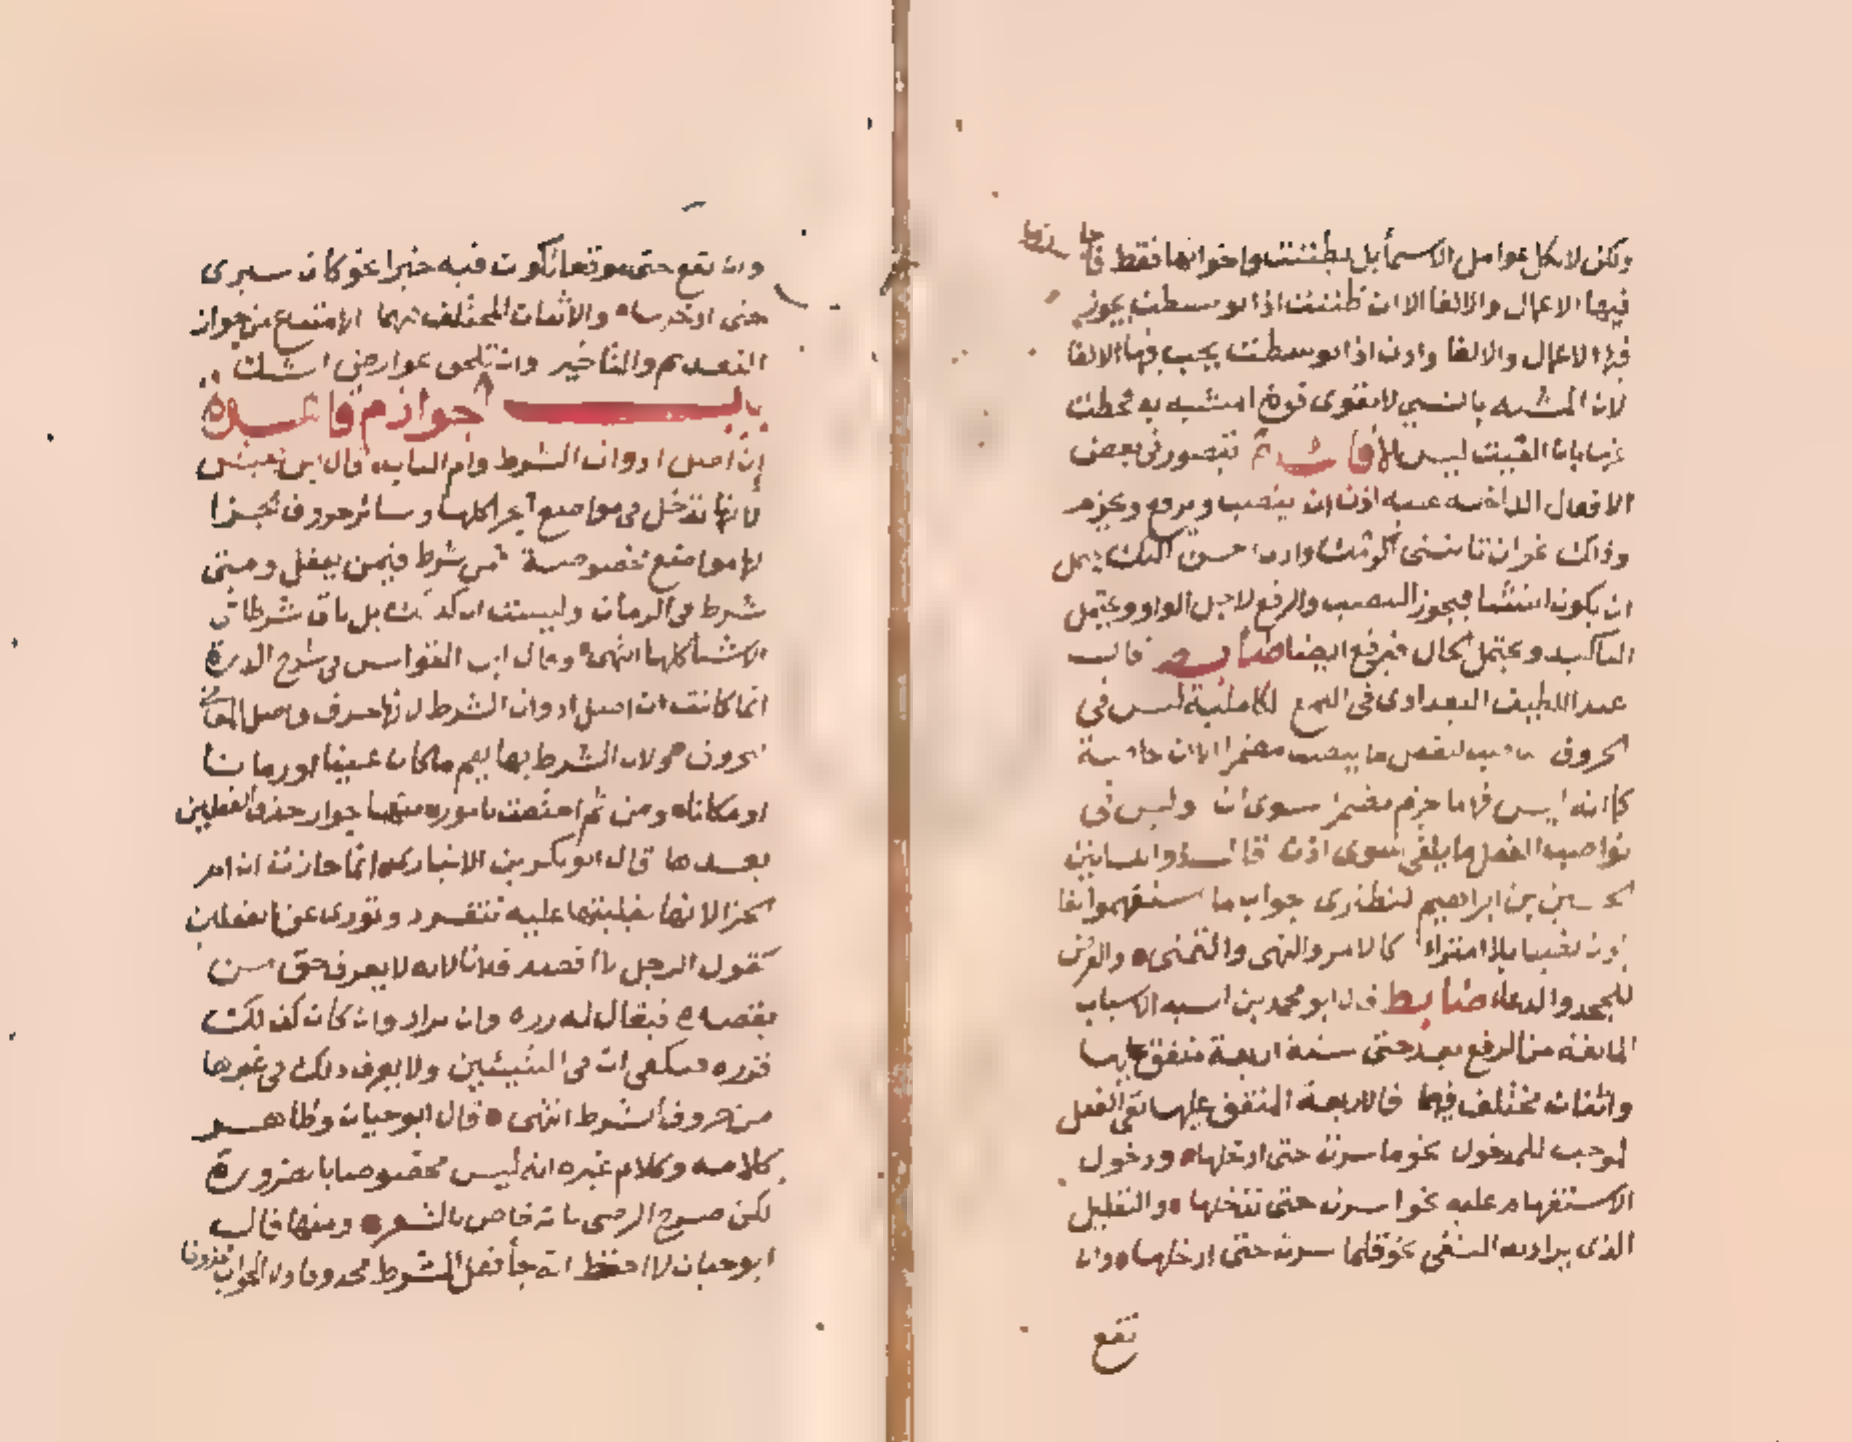 ولكن لا بكل عوامل الاسما بل بظننت واخواتها فقط فاجا
فيها الاعمال والالغا الا ان ظننت اذا توسطت يجوز
فيها الاعمال والالغا واذن اذا توسطت يجب فيها الالغا
لان المشبه بالشي لا يقوى قوة المشبه به فحطت
عنها بان الغيت ليس الا فائدة تتصور في بعض
الافعال الداخلة عليه اذن ان ينصب ويرفع ويجزم
وذلك نحو ان تاتني اكرمك واذن احسن اليك يحتمل
ان يكون انشا فيجوز النصب والرفع لاجل الواو ويحتمل
التاكيد ويحتمل الحال فيرفع ايضا ضابط قال
عبد اللطيف البغدادي في اللمع الكاملية ليس في
الحروف ناصب للفعل ما ينصب مضمرا الا ان خاصة
كما انه ليس فيها ما جزم مضمرا سوى ان وليس في
نواصب الفعل ما يلغى سوى اذن قال ذو اللسانين
الحسين بن ابراهيم النطنزي جواب ما استفهموا بفا
يكون نصبا بلا امتراء كالامر والنهي والتمني والعرض
للجحد والدعاء ضابط قال ابو محمد بن السيد الاسباب
المانعة من الرفع بعد حتى ستة اربعة متفق عليها
واثنان مختلف فيهما فالاربعة المتفق عليها نفي الفعل
الموجب للدخول نحو ما سرت حتى ادخلها ودخول
الاستفهام عليه نحو اسرت حتى تدخلها والتقليل
الذي يراد به النفي نحو قلما سرت حتى ادخلها وان
تقع
وان تقع حتى موقعا تكون فيه خبرا نحو كان سيري
حتى ادخلها والاثنان المختلف فيهما الامتناع من جواز
التقديم والتاخير وان تلحق عوارض الشك
باب الجوازم قاعدة
ان اصل ادوات الشرط وام الباب قال ابن يعيش
لانها تدخل في مواضع الجزا كلها وسائر حروف الجزا
لها مواضع مخصوصة فمن شرط فيمن يعقل ومتى
شرط في الزمان وليست ان كذلك بل تاتي شرطا في
الاشيا كلها انتهى وقال ابن القواس في شرح الدرة
انما كانت ان اصل ادوات الشرط لانها حرف واصل المعاني
الحروف ولان الشرط بها يعم ما كان عينا او زمانا
او مكانا ومن ثم اختصت بامور منها جواز حذف الفعلين
بعدها قال ابو بكر بن الانباري انما صارت ان ام
الجزا لانها بغلبتها عليه تنفرد وتؤدي عن الفعلين
يقول الرجل لا اقصد فلانا لانه لا يعرف حق من
يقصده فيقال له زره وان يراد وان كان كذلك
فزره فتكفي ان من الشيئين ولا يعرف ذلك في غيرها
من حروف الشرط انتهى قال ابو حيان وظاهر
كلامه وكلام غيره انه ليس مخصوصا بالضرورة
لكن صرح الرضي بانه خاص بالشعر ومنها قال
ابو حيان لا احفظ انه جا فعل الشرط محذوفا والجواب محذوفا